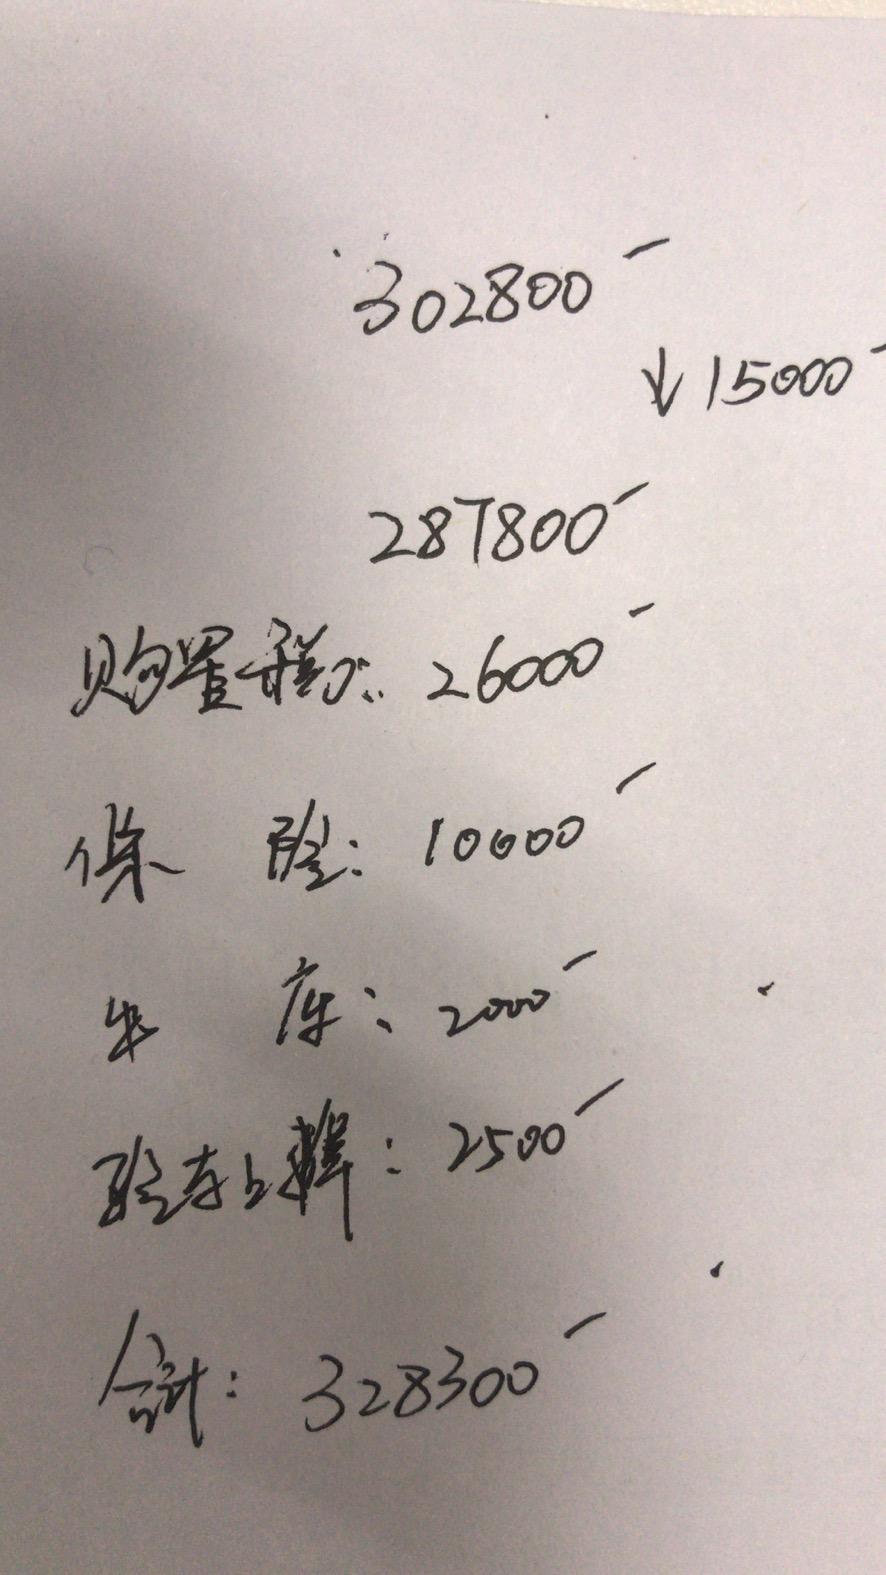 302800
↓15000
287800
购置税: 26000
保 险: 10000
出 库: 2000
验车上牌: 2500
合计: 328300